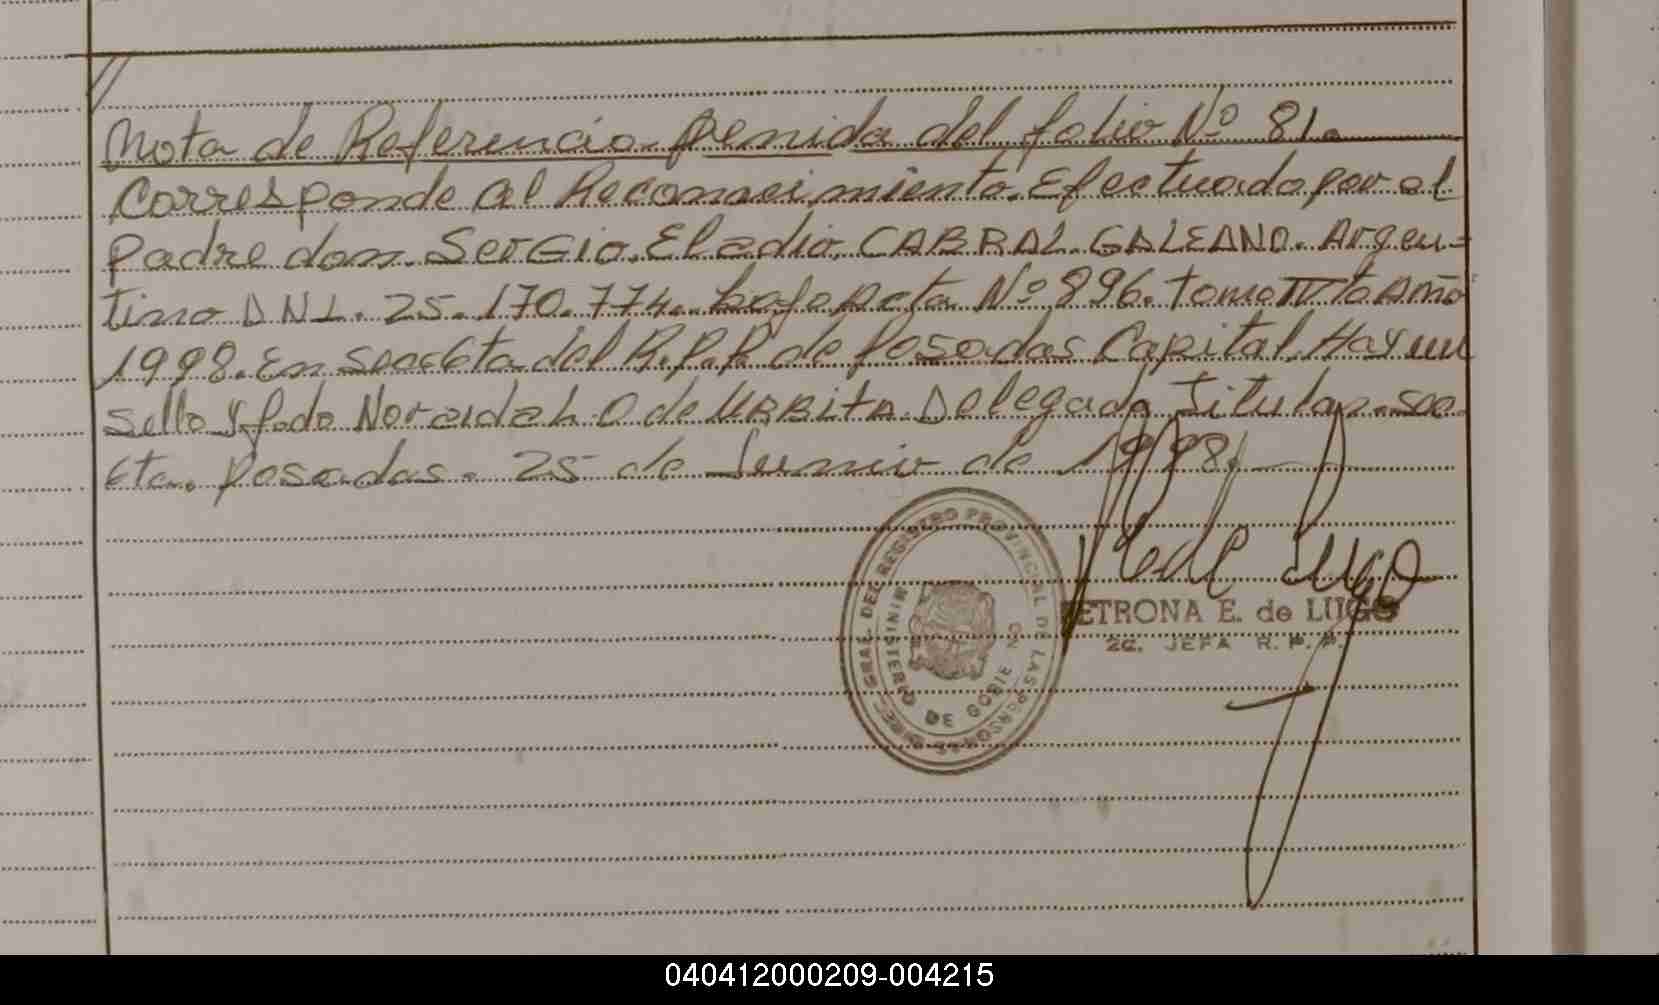 Nota de Referencia Venida del folio Nº 81.
Corresponde al Reconocimiento Efectuado por el
Padre don. Sergio. Eladio. CABRAL. GALEANO. Argen-
tino DNI. 25.170.774. bajo acta Nº 896. Tomo IV to Año
1998. En secc 6ta del R.P.P. de Posadas Capital. Hay un
sello y fdo Noraidah O de URBITA. Delegada Titular. sec
6ta. Posadas. 25 de Junio de 1998.
DIREC. GRAL. DEL REGISTRO PROVINCIAL DE LAS PERSONAS
MINISTERIO DE GOBIERNO
de Lugo
PETRONA E. de LUGO
2ª. JEFA R.P.P.
040412000209-004215